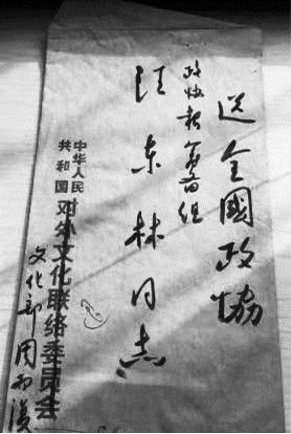 送全國政協
政协报筹备组
汪东林同志
中华人民
共和国
对外文化联络委员会
文化部周而復